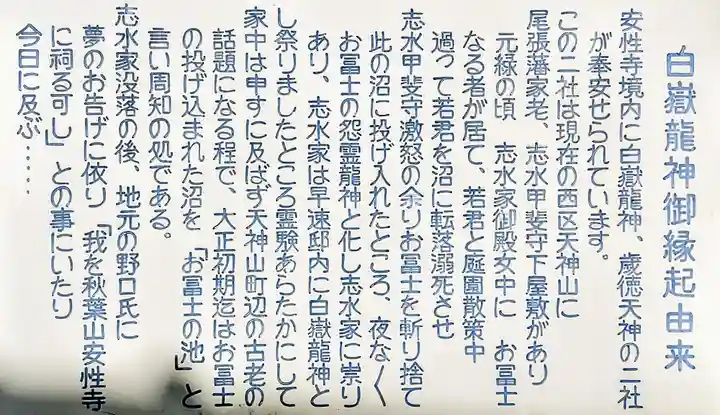 白嶽龍神御縁起由来
安性寺境内に白嶽龍神、歳徳天神の二社
が奉安せられています。
この二社は現在の西区天神山に
尾張藩家老、志水甲斐守下屋敷があり
元緑の頃　志水家御殿女中に　お冨士
なる者が居て、若君と庭園散策中
過って若君を沼に転落溺死させ
志水甲斐守激怒の余りお冨士を斬り捨て
此の沼に投げ入れたところ、夜な〱
お冨士の怨霊龍神と化し志水家に祟り
あり、志水家は早速邸内に白嶽龍神と
し祭りましたところ霊験あらたかにして
家中は申すに及ばず天神山町辺の古老の
話題になる程で、大正初期迄はお冨士
の投げ込まれた沼を　「お冨士の池」と
言い周知の処である。
志水家没落の後、地元の野口氏に
夢のお告げに依り「我を秋葉山安性寺
に祠る可し」との事にいたり
今日に及ぶ‥‥‥